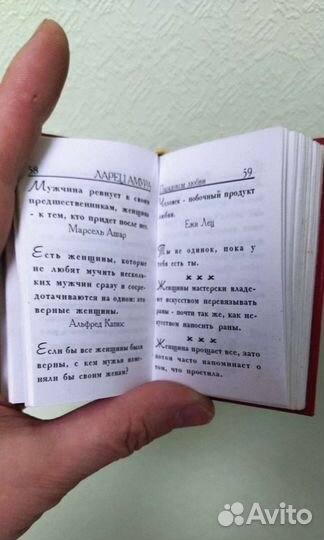 58 ЛАРЕЦ АМУРА
Мужчина ревнует к своим
предшественникам, женщина
- к тем, кто придет после нее.
Марсель Ашар
Есть женщины, которые
не любят мучить несколь-
ких мужчин сразу и сосре-
дотачиваются на одном: это
верные женщины.
Альфред Капюс
Если бы все женщины были
верны, с кем мужья изме-
няли бы своим женам?
любви 59
Человек - побочный продукт
любви.
Ежи Лец
Ты не одинок, пока у
тебя есть ты.
× × ×
Женщины мастерски владе-
ют искусством перевязывать
раны - почти так же, как ис-
кусством наносить раны.
× × ×
Женщина прощает все, зато
потом часто напоминает о
том, что простила.
Avito